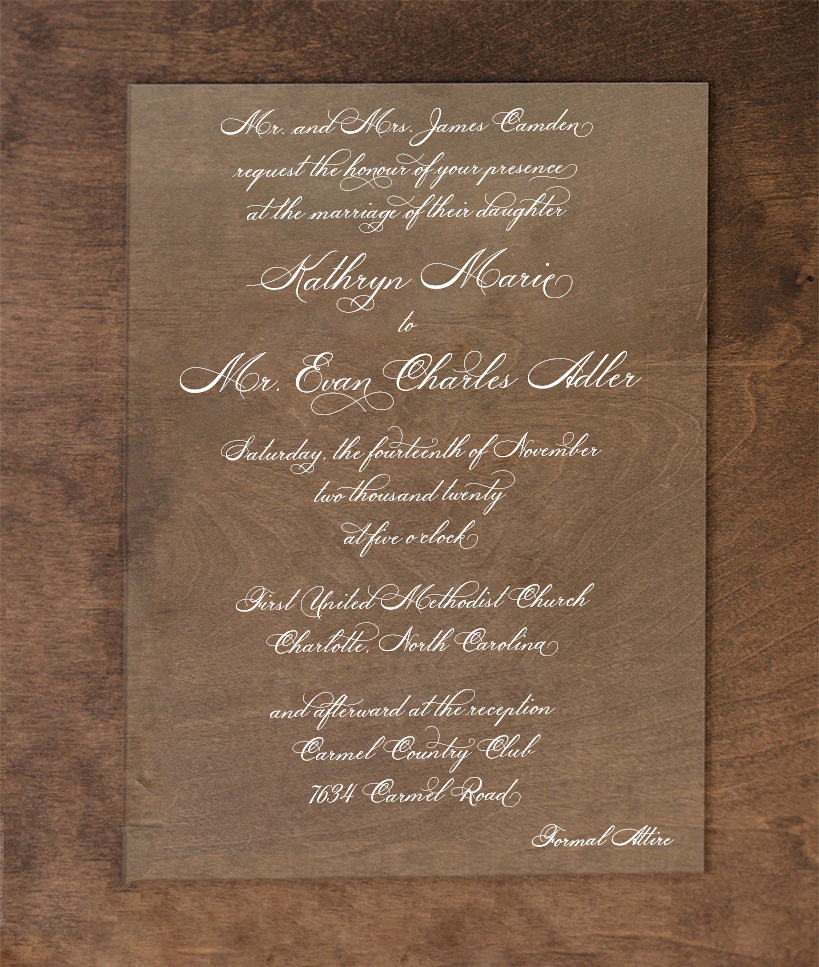 Mr. and Mrs. James Camden
request the honour of your presence
at the marriage of their daughter
Kathryn Marie
to
Mr. Evan Charles Adler
Saturday, the fourteenth of November
two thousand twenty
at five o'clock
First United Methodist Church
Charlotte, North Carolina
and afterward at the reception
Carmel Country Club
7634 Carmel Road
Formal Attire